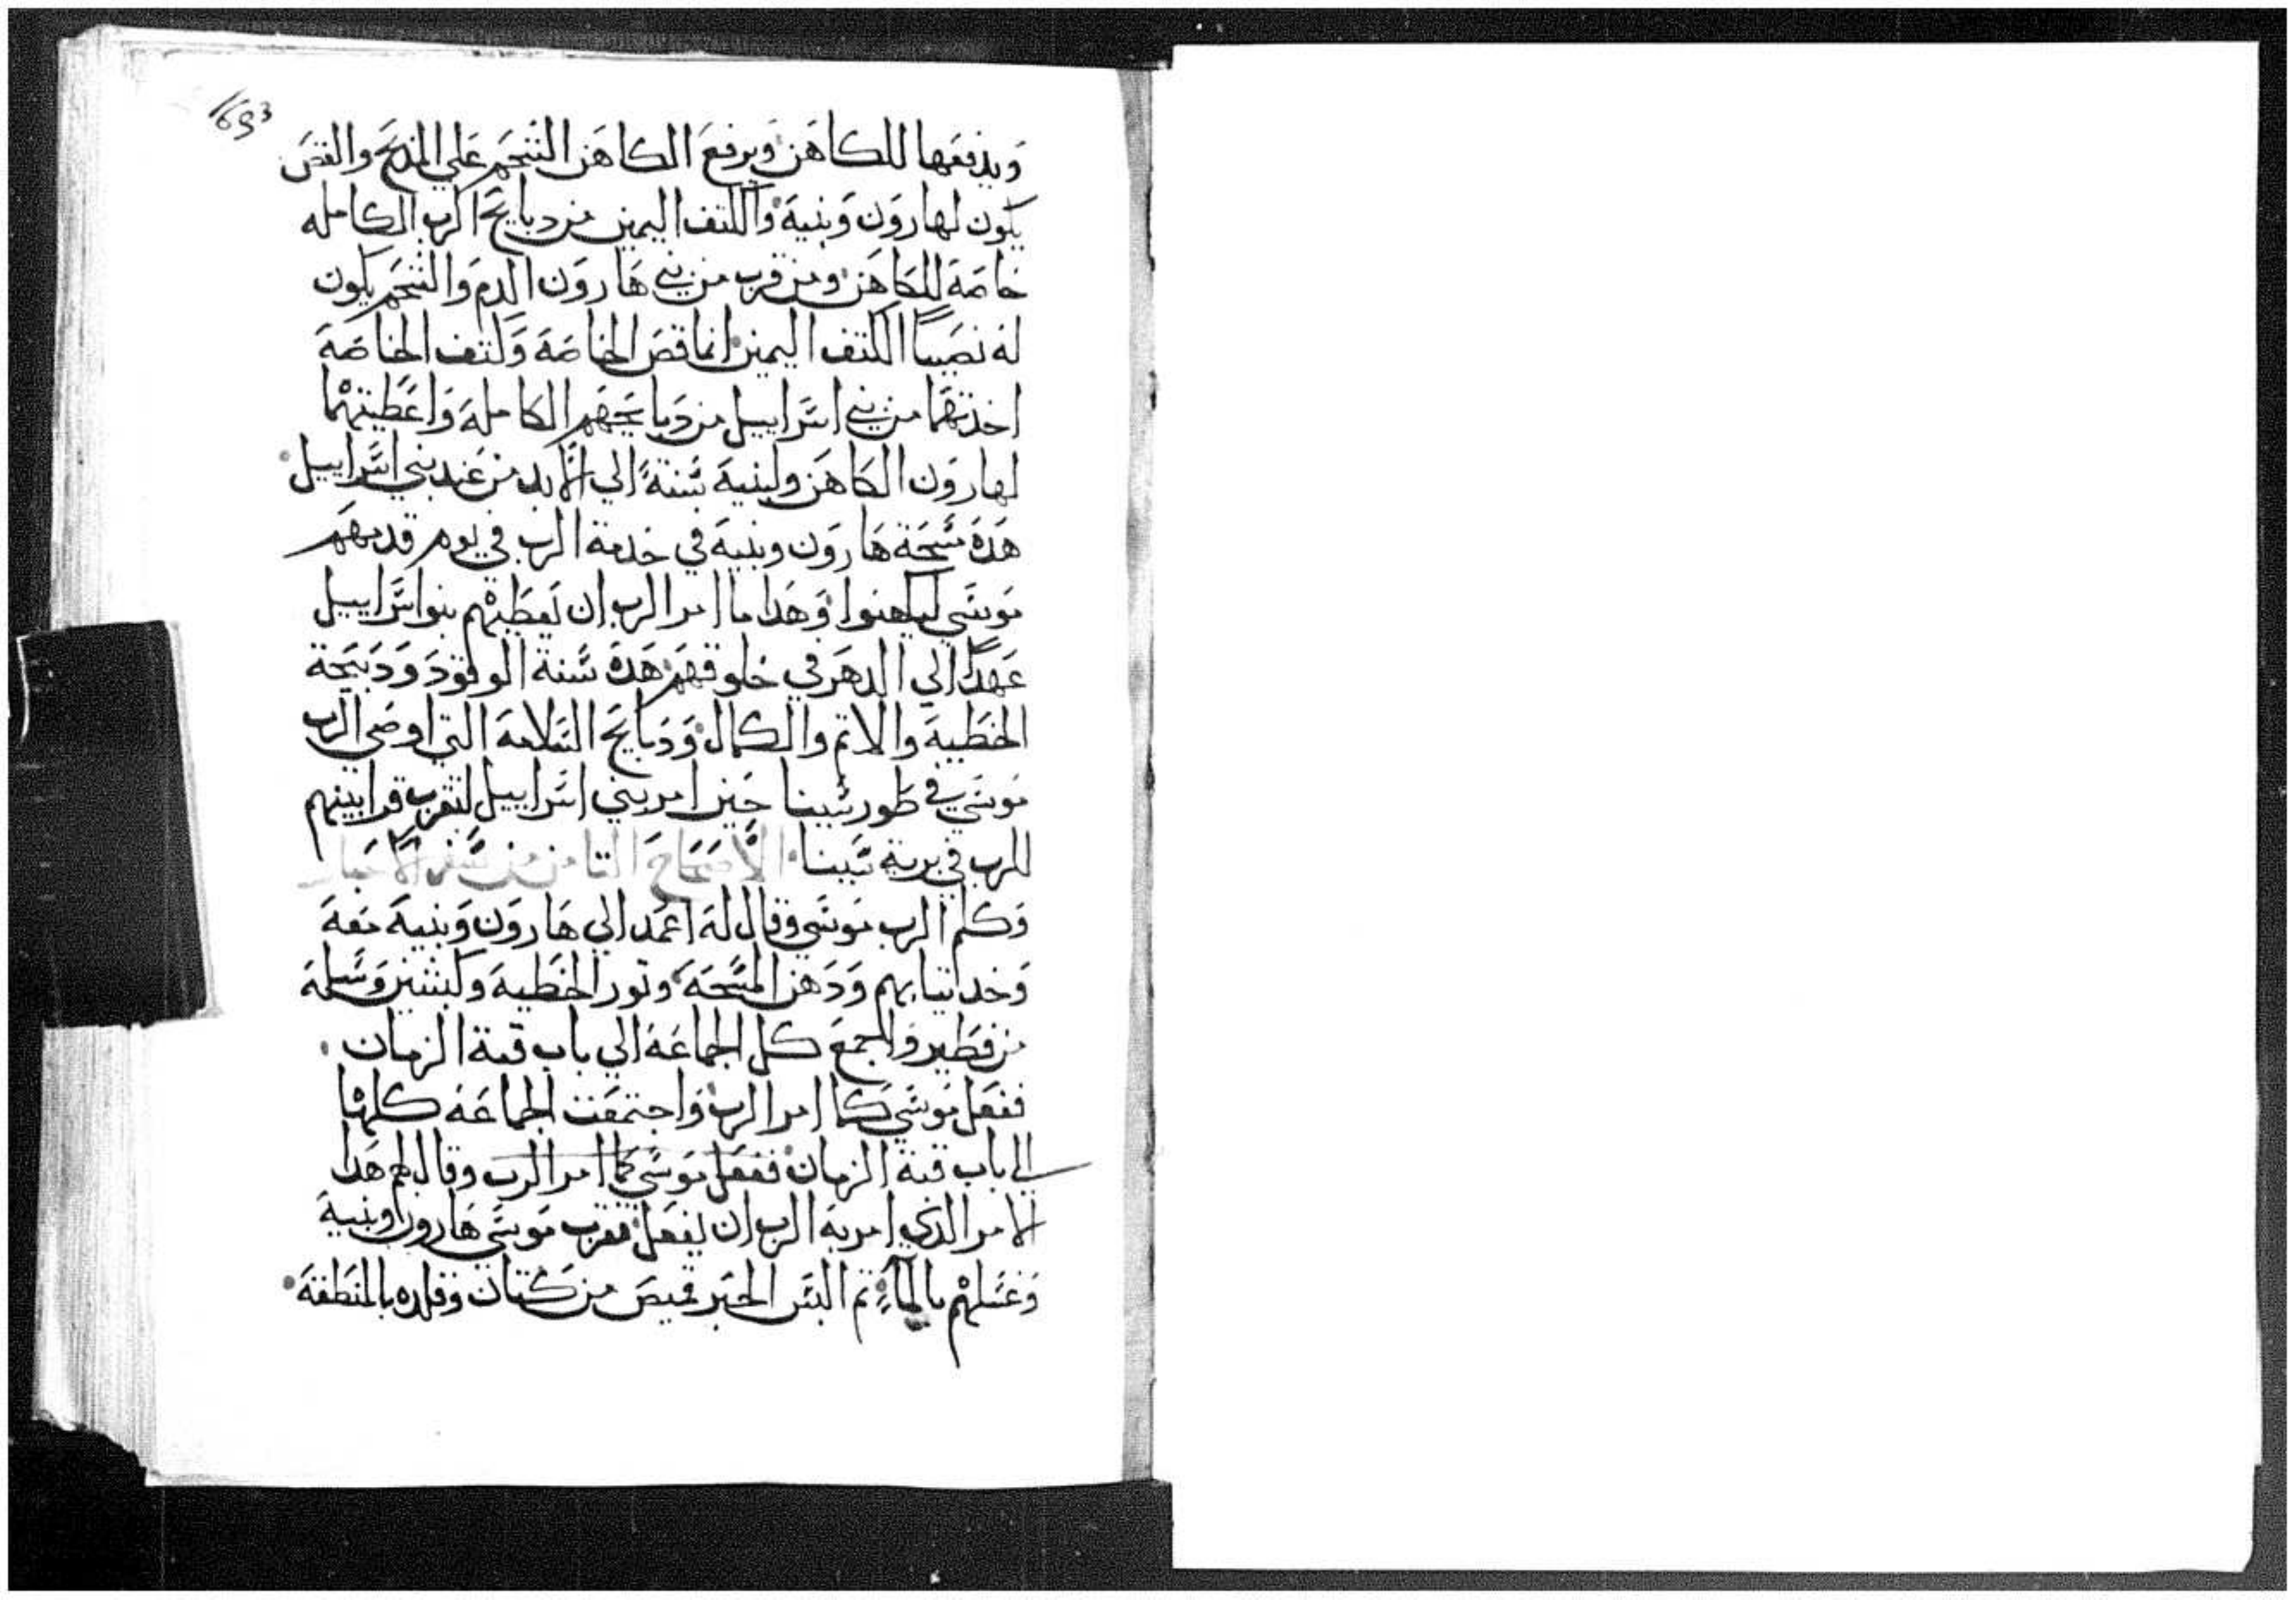 163
وَيدفعَها للكاهَن وَيرفعَ الكاهَن الشَحَم عَلي المدبح والقصَ
يكون لهارَون وَبنيهَ وَالكتف اليمين من دبايحَ الرب الكامله
خاصَهَ للكَاهَن ومن قرب من بني هَارَون الدم وَالشحَم يكون
لهَ نصَيباً الكتف اليمين انما قصَ الخاصَهَ وَكتف الخاصَهَ
اخدتهَما من بني اسَراييل من دَبايحَهَم الكاملهَ وَاعَطيتهْما
لهارَون الكاهَن ولبنيهَ سَنةً الي الاَبد من عَند بني اسَراييل
هَدهَ مسَحَة هَارَون وبنيهَ في خدمة الرب في يوم قدمهَم
موسَي ليكهنوا وَهَدا ما امر الرب ان تعَطيهْم بنوا اسَراييل
عَهَداً الي الدهَر في خلوقهَم هَدهَ سَنة الوقود وَدَبيحَة
الخطَيهَ والاتم والكمال وَدَبايحَ السَلامهَ التي اوصَي الرب
موسَي في طَور سَينا حَين امر بني اسَراييل لتقرب قرابينهم
للرب في برية سَينا الاَصَحَاحَ التامن من سَفر الاَحَبار
وَكلم الرب موسَي وقال لهَ اعَمد الي هَارَون وَبنيهَ معَهَ
وَخد تيابهم وَدَهَن المسَحَهَ وتور الخطَيهَ وكبشين وَسَلهَ
من فطَير وَاجمعَ كل الجماعَهَ الي باب قبة الزمان
ففعَل موسَي كما امر الرب وَاجتمعَت الجماعَهَ كلهْا
الي باب قبة الزمان ففعَل موسَي كما امر الرب وقال لهم هَدا
الامر الدي امر بهَ الرب ان يفعَل فقرب موسَي هَارون وبنيهَ
وَغسَلهْم بالمآءِ تم البسَ الحَبر قميصَ من كتان وقلده بالمنطَقهَ